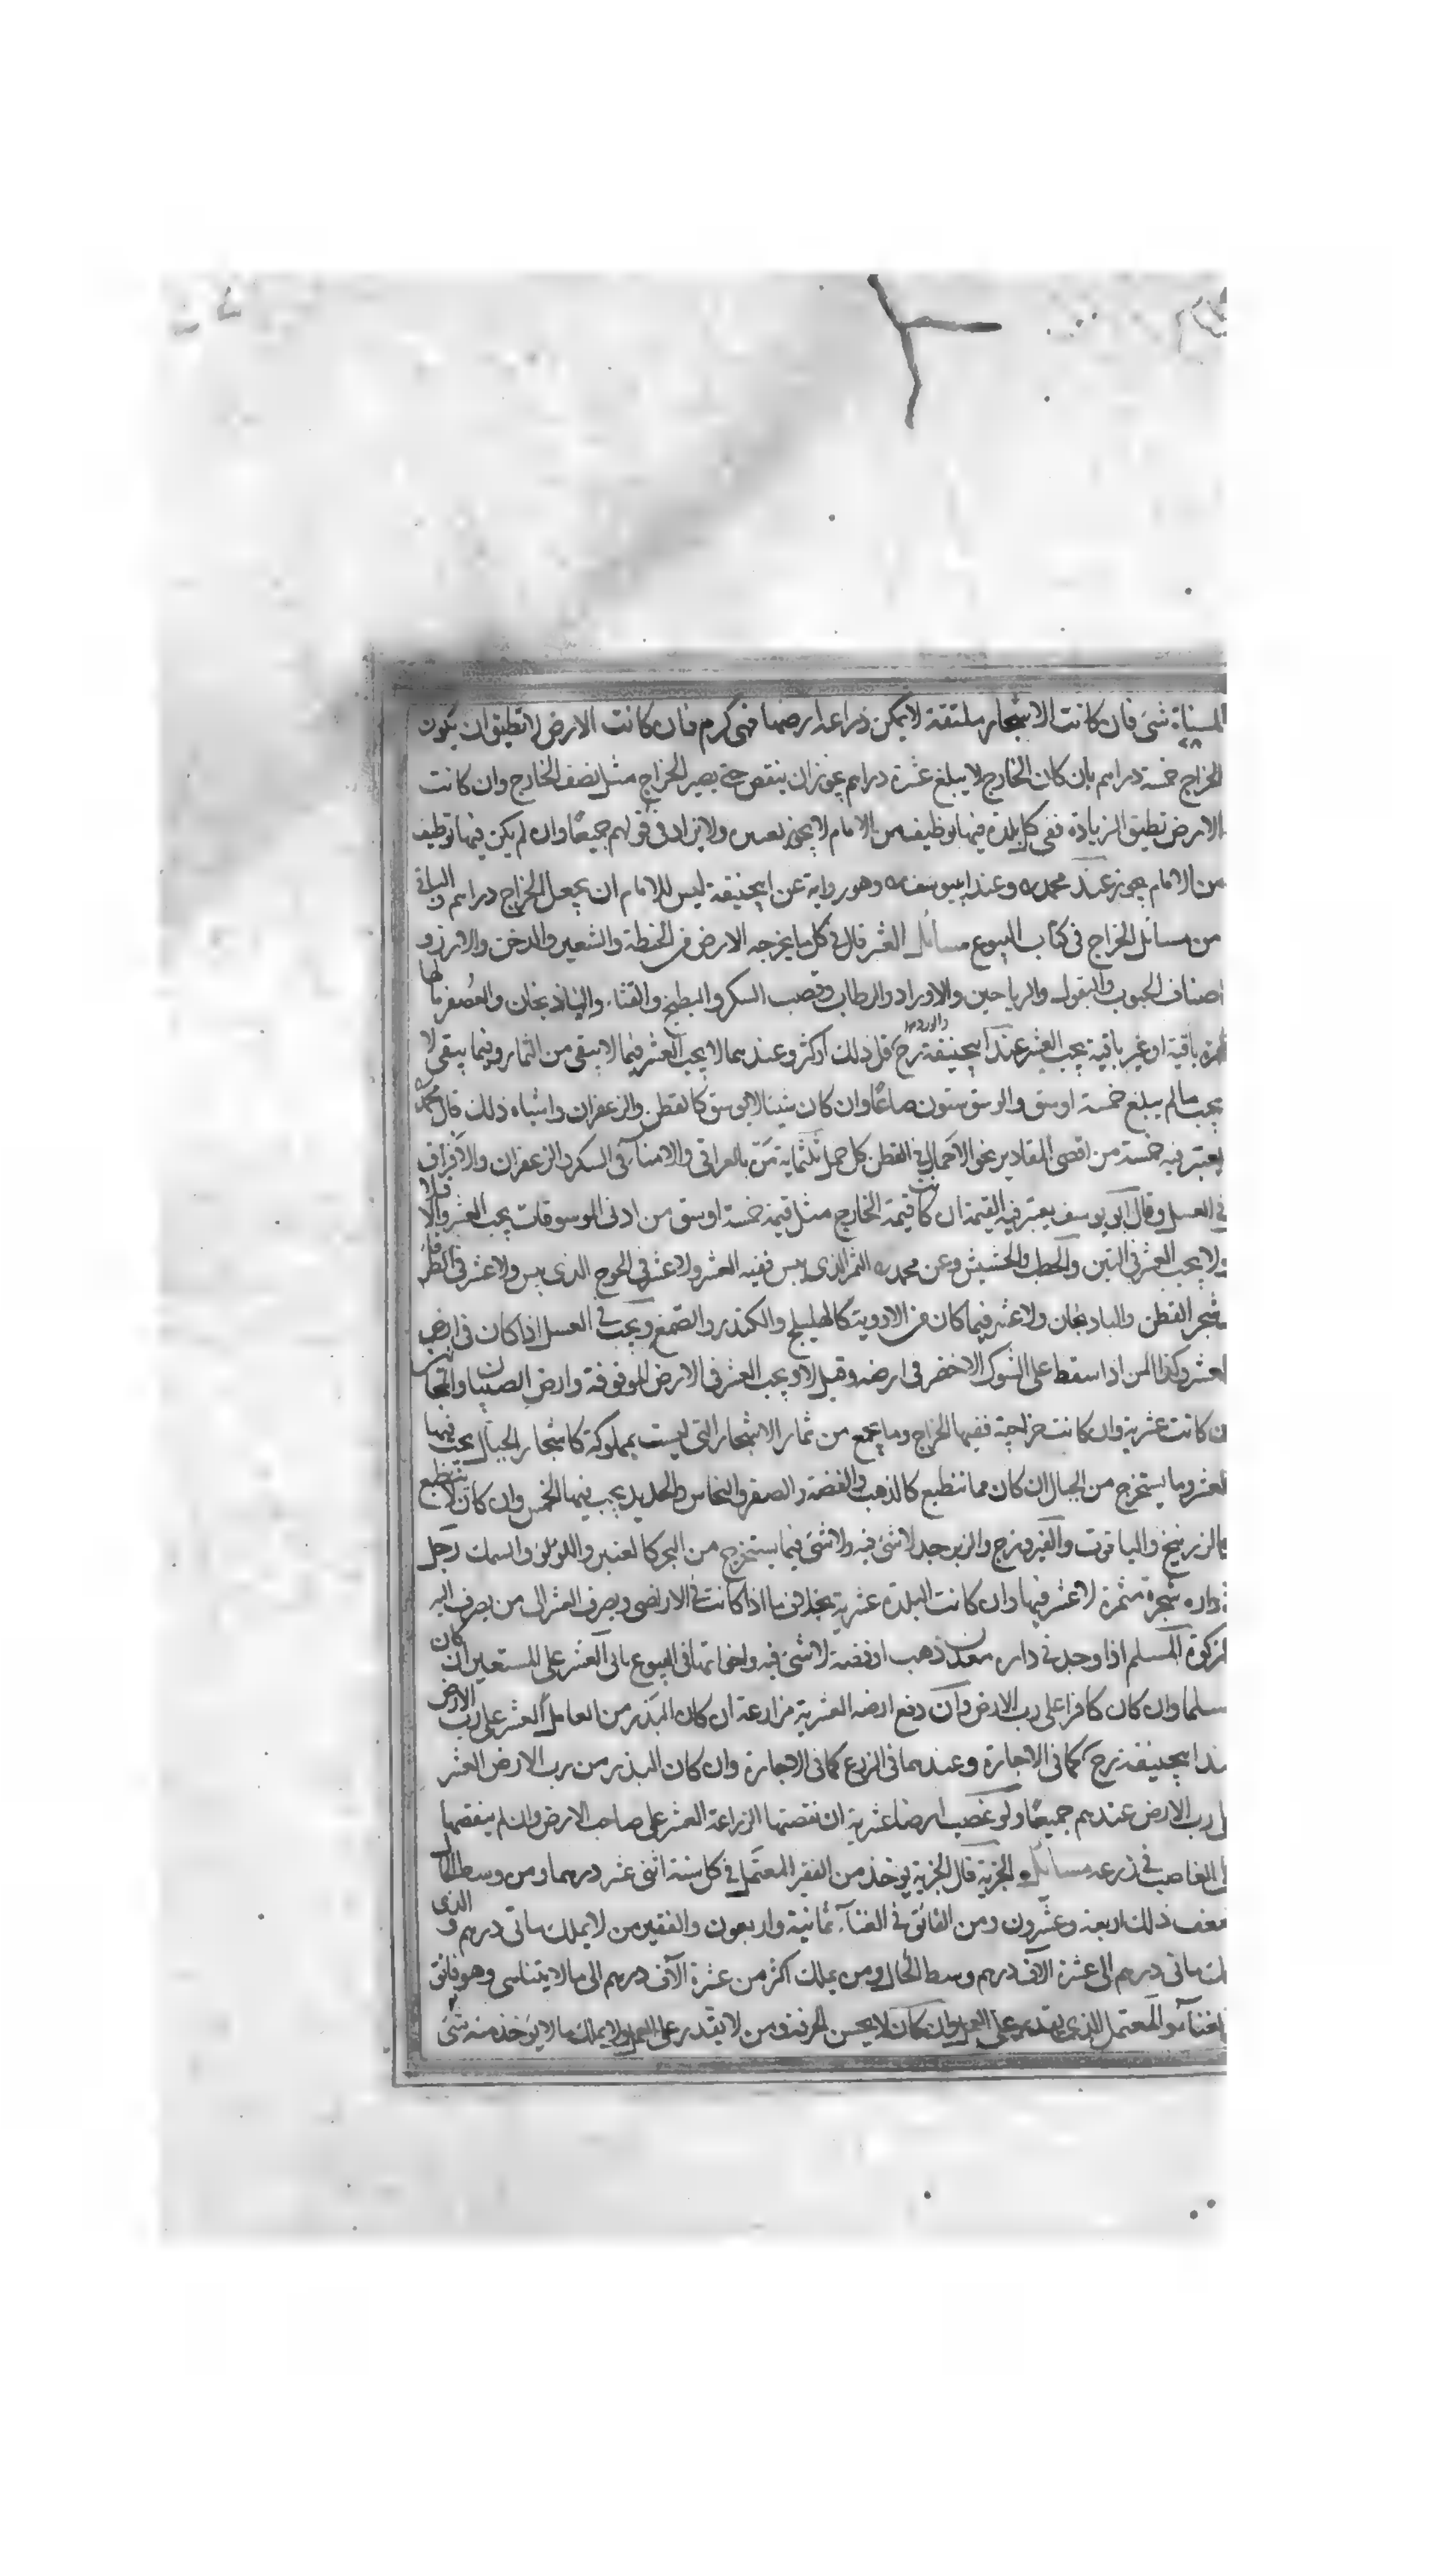 المسناة شئ فان كانت الاشجار ملتفة لا يمكن زراعة ارضها فهى كرم فان كانت الارض لا تطيق ان يكون
الخراج خمسة دراهم بان كان الخارج لا يبلغ عشرة دراهم يجوز ان ينقص حتى يصير الخراج مثل نصف الخارج وان كانت
الارض تطيق الزيادة ففى كل بلدة فيها توظيف من الامام لا يجوز ولا يزاد فى قولهم جميعًا وان لم يكن فيها توظيف
من الامام يجوز عند محمد ره وعند ابيوسف ره وهو رواية عن ابيحنيفة ليس للامام ان يجعل الخراج دراهم والباقى
من مسائل الخراج فى كتاب البيوع مسائل العشر قال فى كل ما يخرجه الارض من الحنطة والشعير والدخن والارز و
اصناف الحبوب والبقول والرياحين والاوراد والرطاب وقصب السكر والبطيخ والقثاء والباذنجان والعصفر مالها
ثمرة باقية او غير باقية يجب العشر عند ابيحنيفة رح قل ذلك او كثر وعندهما لا يجب العشر فيما لا يبقى من الثمار وفيما يبقى لا
يجب مالم يبلغ خمسة اوسق والوسق ستون صاعًا وان كان شيئا لا يوسق كالقطن والزعفران واشباه ذلك قال محمد ره
يعتبر فيه خمسة من اقصى المقادير نحو الاحمال فى القطن كل حمل ثلثماية من بالعراقى والامناء فى السكر والزعفران والافراق
فى العسل وقال ابو يوسف يعتبر فيه القيمة ان كانت قيمة الخارج مثل قيمة خمسة اوسق من ادنى الموسوقات يجب العشر والا فلا
ولا يجب العشر فى التبن والحطب والحشيش وعن محمد ره الثمر الذى يبس ففيه العشر ولا عشر فى الخوخ الذى يبس ولا عشر فى الطرفاء
وشجر القطن والباذنجان ولا عشر فيما كان من الادوية كالهليلج والكندر والصمغ ويجب فى العسل اذا كان فى ارض
العشر وكذا المن اذا سقط على الشوك الاخضر فى ارضه وقيل لا ويجب العشر فى الارض الموقوفة وارض الصبيان والمجانين
ان كانت عشرية وان كانت خراجية ففيها الخراج وما يجمع من ثمار الاشجار التى ليست بمملوكة كاشجار الجبال يجب فيها
العشر وما يستخرج من الجبال ان كان مما ينطبع كالذهب والفضة والصفر والنحاس والحديد يجب فيها الخمس وان كان لا ينطبع
كالزرنيخ والياقوت والفيروزج والزبرجد لا شئ فيه ولا شئ فيما يستخرج من البحر كالعنبر واللؤلؤ والسمك رجل
فى داره شجرة مثمرة لا عشر فيها وان كانت البلدة عشرية بخلاف ما اذا كانت فى الاراضى ويصرف العشر الى من يصرف اليه
الزكوة المسلم اذا وجد فى داره معدن ذهب او فضة لا شئ فيه واخواتها فى البيوع العشر على المستعير ان كان
مسلما وان كان كافرا على رب الارض وان دفع ارضه العشرية مزارعة ان كان البذر من العامل العشر على رب الارض
عند ابيحنيفة رح كما فى الاجارة وعندهما فى الزرع كما فى الاجارة وان كان البذر من رب الارض العشر
على رب الارض عندهم جميعًا ولو غصب ارضا عشرية ان نقصتها الزراعة العشر على صاحب الارض وان لم ينقصها
على الغاصب فى زرعه مسائل الجزية قال الجزية يوخذ من الفقير المعتمل فى كل سنة اثنى عشر درهما ومن وسط الحال
ضعف ذلك اربعة وعشرون ومن الفائق فى الغناء ثمانية واربعون والفقير من لا يملك مائتى درهم والذى
يملك مائتى درهم الى عشرة آلاف درهم وسط الحال ومن يملك اكثر من عشرة آلاف درهم الى مالا يتناهى وهو فائق
الغناء والمعتمل الذى يقدر على العمل وان كان لا يحسن الحرفة ومن لا يقدر على العمل ولا يملك مالا لا يوخذ منه شئ